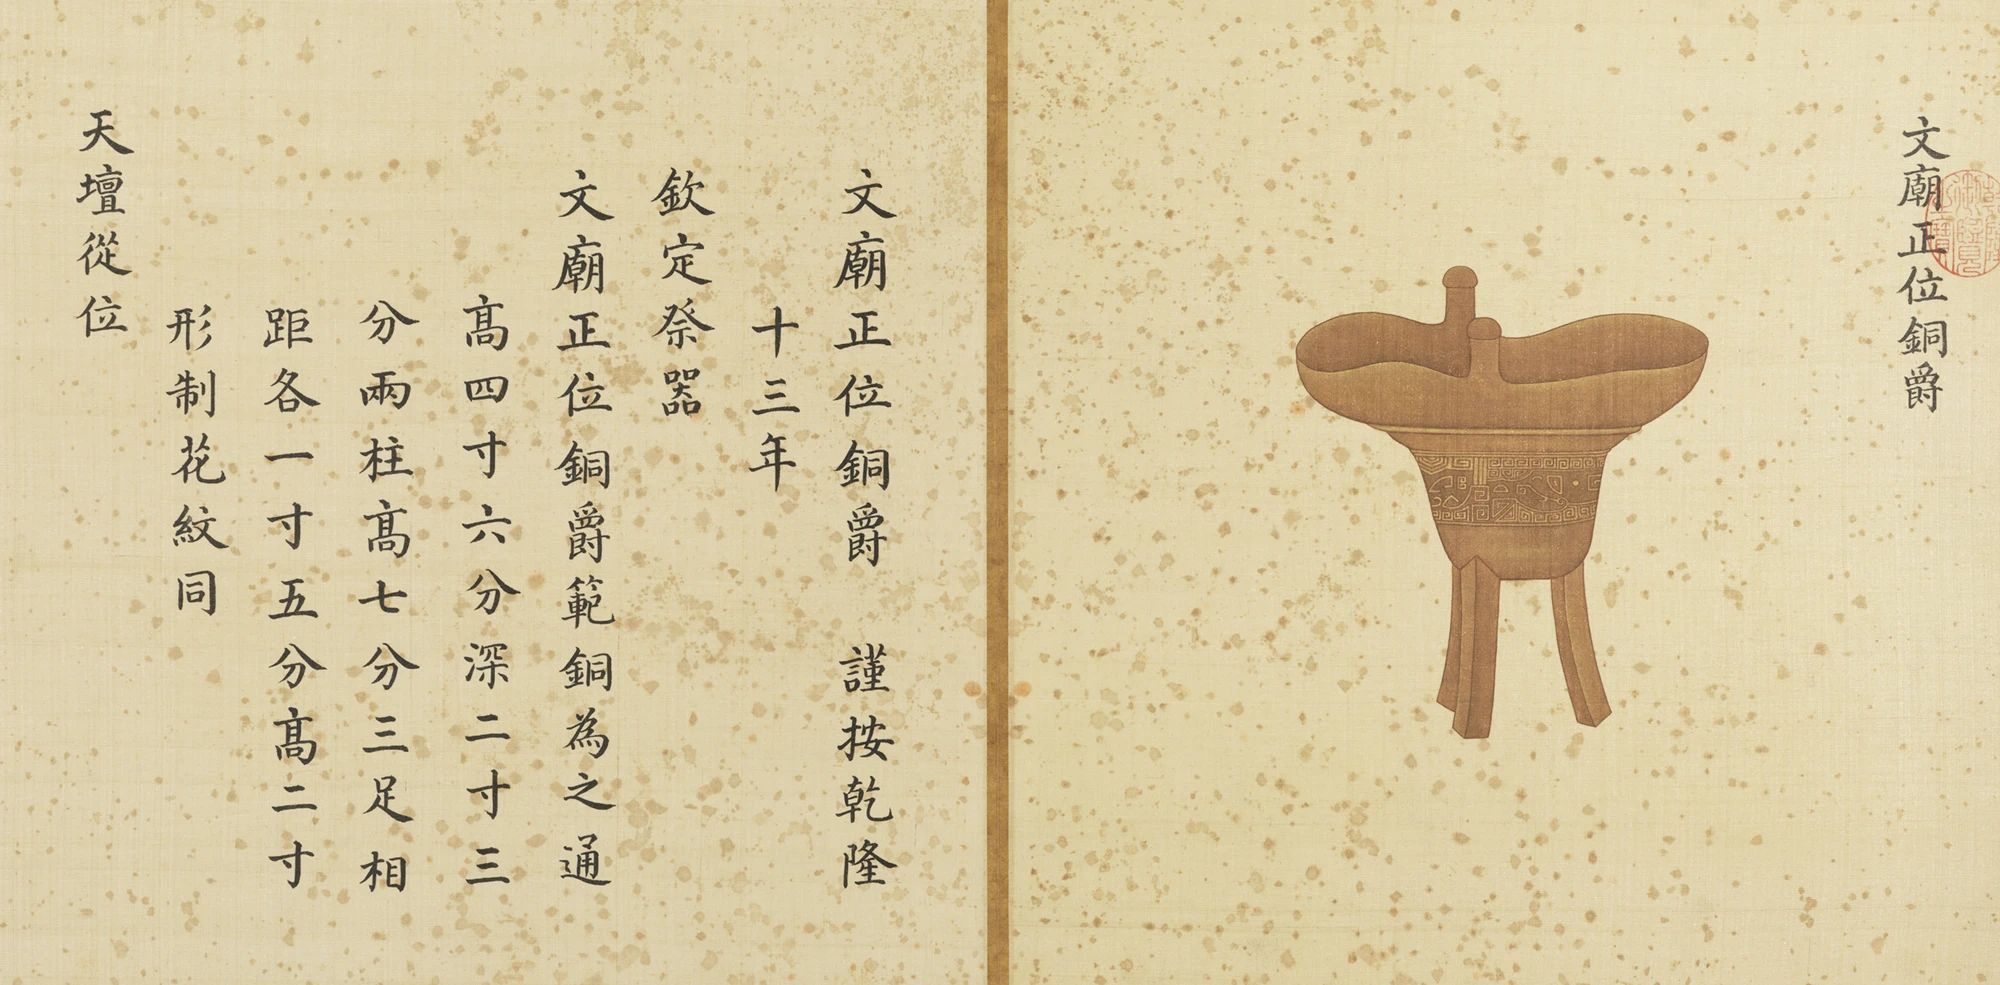 文廟正位銅爵
文廟正位銅爵　謹按乾隆
十三年
欽定祭器
文廟正位銅爵範銅為之通
高四寸六分深二寸三
分兩柱高七分三足相
距各一寸五分高二寸
形制花紋同
天壇從位